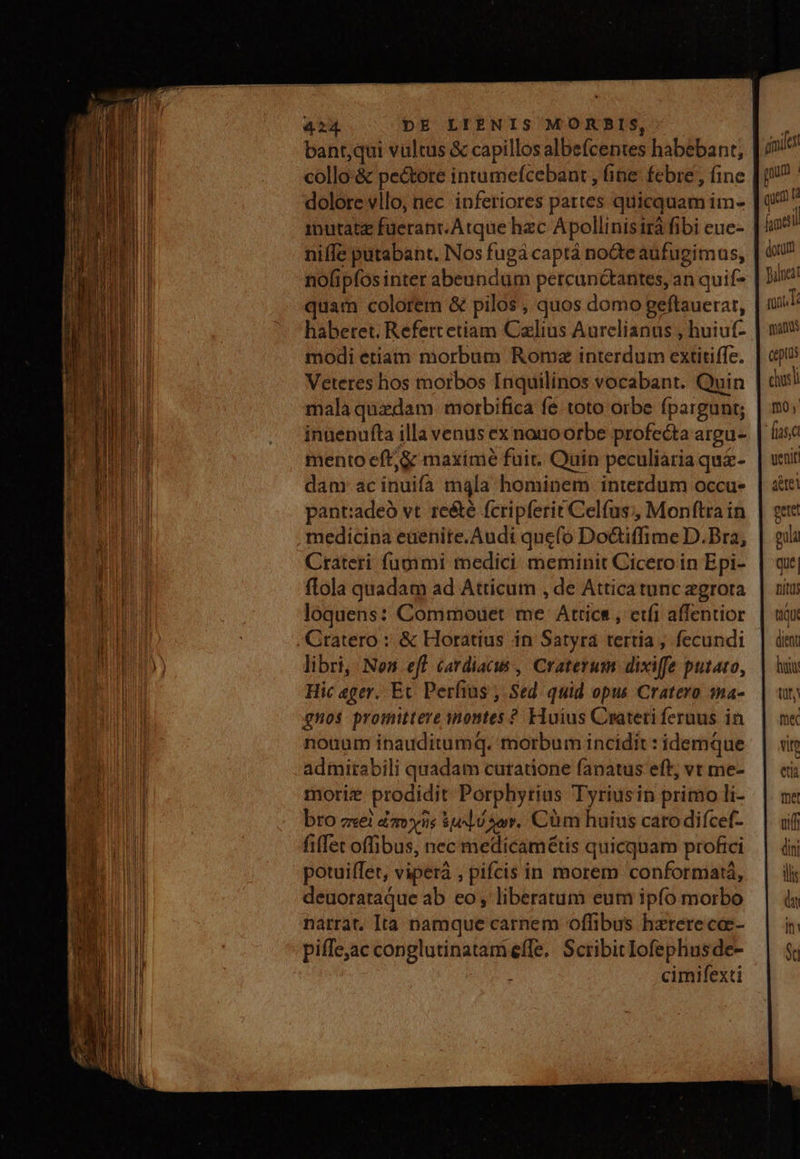 424 DE LIENIS MORBIS,
bant, qui vultus & capillos albeſcentes habebant,
collo & pectore intumeſcebant, ſine febre, ſine
dolore vllo, nec inferiores partes quicquam im-
mutatæ fuerant. Atque hæc Apollinis irâ ſibi eue-
niſſe putabant. Nos fugâ captâ nocte aufugimus,
noſipſos inter abeundum percunctantes, an quiſ-
quam colorem & pilos, quos domo geſtauerat,
haberet. Refert etiam Cælius Aurelianus, huiuſ-
modi etiam morbum Romæ interdum extitiſſe.
Veteres hos morbos Inquilinos vocabant. Quin
mala quædam morbifica ſe toto orbe ſpargunt;
inuenuſta illa venus ex nouo orbe profecta argu-
mento eſt, & maximè fuit. Quin peculiaria quæ-
dam ac inuiſa mala hominem interdum occu-
pant: adeò vt rectè ſcripſerit Celſus, Monſtra in
medicina euenire. Audi queſo Doctiſſime D. Bra,
Crateri ſummi medici meminit Cicero in Epi-
ſtola quadam ad Atticum, de Attica tunc ægrota
loquens: Commouet me Attica, etſi aſſentior
Cratero: & Horatius in Satyra tertia, ſecundi
libri, Non eſt cardiacus, Craterum dixiſſe putato,
Hic æger. Et Perſius, Sed quid opus Cratero ma-
gnos promittere montes? Huius Crateri ſeruus in
nouum inauditumq. morbum incidit: idemque
admirabili quadam curatione ſanatus eſt, vt me-
moriæ prodidit Porphyrius Tyrius in primo li-
bro περὶ ἀποχῆς ἐμψύχων. Cùm huius caro diſceſ-
ſiſſet oſſibus, nec medicamẽtis quicquam profici
potuiſſet, viperâ, piſcis in morem conformatâ,
deuorataque ab eo, liberatum eum ipſo morbo
narrat. Ita namque carnem oſſibus hærere cœ-
piſſe, ac conglutinatam eſſe. Scribit Ioſephus de-
cimiſexti